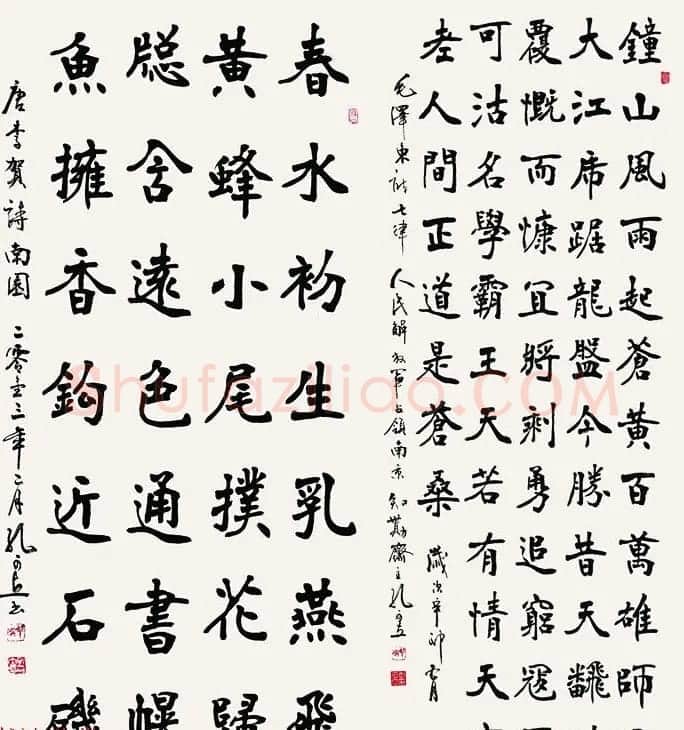 鐘山風雨起蒼黃百萬雄師
大江虎踞龍盤今勝昔天翻
覆慨而慷宜將剩勇追窮寇
可沽名學霸王天若有情天
老人間正道是蒼桑
歲次辛卯
毛澤東詩七律 人民解放軍占領南京
春水初生乳燕飛
黃蜂小尾撲花歸
窗含遠色通書幌
魚擁香鉤近石磯
唐李賀詩南園 二零壹三年二月孔可立书
Shufaziliao.COM